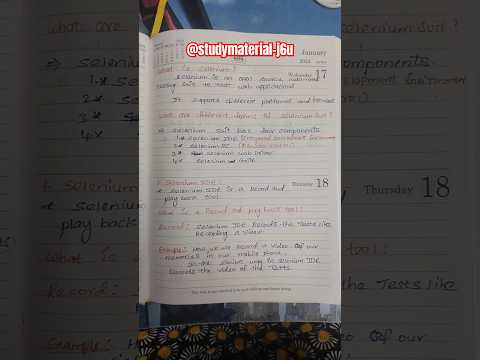 @studymaterial-j6u
January
Wednesday 17
What is selenium?
selenium is an open source automated
testing suit to test web applications
It supports different platforms and browsers
What are different forms of selenium suit?
⇒ selenium suit has four components
1.* selenium IDE (Integrated Development Environment)
2* selenium RC (Remote control)
3* selenium web driver
4* selenium Grid
Thursday 18
1. Selenium IDE:
* selenium IDE is a Record and
play back tool.
What is a Record and play back tool:
Record: selenium IDE Records the Tests like
Recording a video.
Example: How we are record a video of our
memories in our mobile phone.
In the similar way to selenium IDE
Records the video of the Tests.
What are
⇒ selenium
1.*
2*
3*
4*
1. selenium
* selenium
play back
What is
Record:
Example: H
selenium suit?
components
Development Environment
Thursday 18
tool:
the Tests like
of our